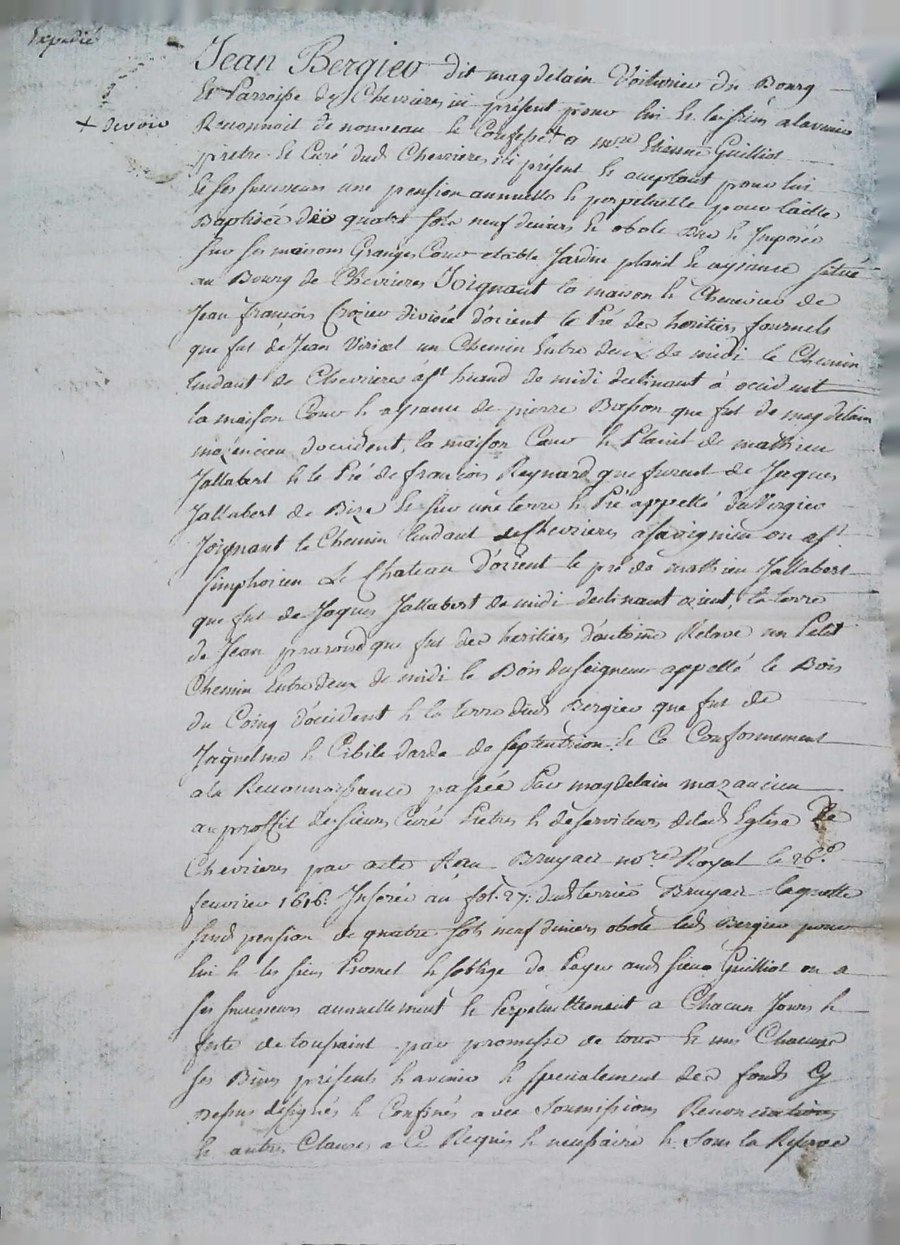 Expedié
Jean Bergier dit magdelain Voiturier du Bourg
Et Parroisse de Chevrieres ici présent pour lui & les siens alavenir
+ devoir
Reconnoit de nouveau & Confesse + a mre Etienne Guilliot
pretre & Curé dud Chevrieres ici présent & acceptant pour lui
& ses successeurs une pension annuelle & perpetuelle pour laditte
Baptisée de quatre sols neuf deniers & obole due & Imposée
sur ses maisons Granges Cour etable Jardin placit & aysiance situé
au Bourg de Chevrieres Joignant la maison & Chenevier de
Jean françois Crozier divisée d'orient le Pré des heritiers fournels
que fut de Jean Viricel un Chemin Entre deux de midi le Chemin
tendant de Chevrieres a st huand de midi declinant à occident
la maison Cour & aysiance de pierre Basson que fut de magdelain
mazencieu d'occident, la maison Cour & Placit de mathieu
Jallabert & le Pré de francois Reynard que furent de Jaques
Jallabert de Bize & sur une terre & Pré appellé du Vergier
Joignant le Chemin tendant de Chevrieres a savignieu ou st
simphorien Le Chateau d'orient le pré de mathieu Jallabert
que fut de Jaques Jallabert de midi declinant orient, la terre
de Jean que fut des heritiers d'antoine un Petit
Chemin Entre deux de midi le Bois du seigneur appellé le Bois
du Coing d'occident & la terre dud Bergier que fut de
Jaquelme & Cibile darde de septentrion & Ce Conformement
a la Reconnoissance passée Par magdelain mazancieu
au proffit des sieurs Curé Pretres & deserviteurs de lad Eglise de
Chevrieres par acte Reçu Bruyas nore Royal le 26e
feuvrier 1616. Inserée au fol. 27. dud terrier Bruyas laquelle
susd pension de quatre sols neuf deniers obole led Bergier pour
lui & les siens Promet & s'oblige de Payer aud sieur Guilliot ou a
ses successeurs annuellement & Perpetuellement a Chacun Jour &
feste de toussaint par promesse de tous & uns Chacuns
ses Biens présents & avenir & specialement des fonds Cy
dessus désignés & Confinés avec soumissions Renonciations
& autres Clauses a Ce Requis & necessaire & sous la Reserve